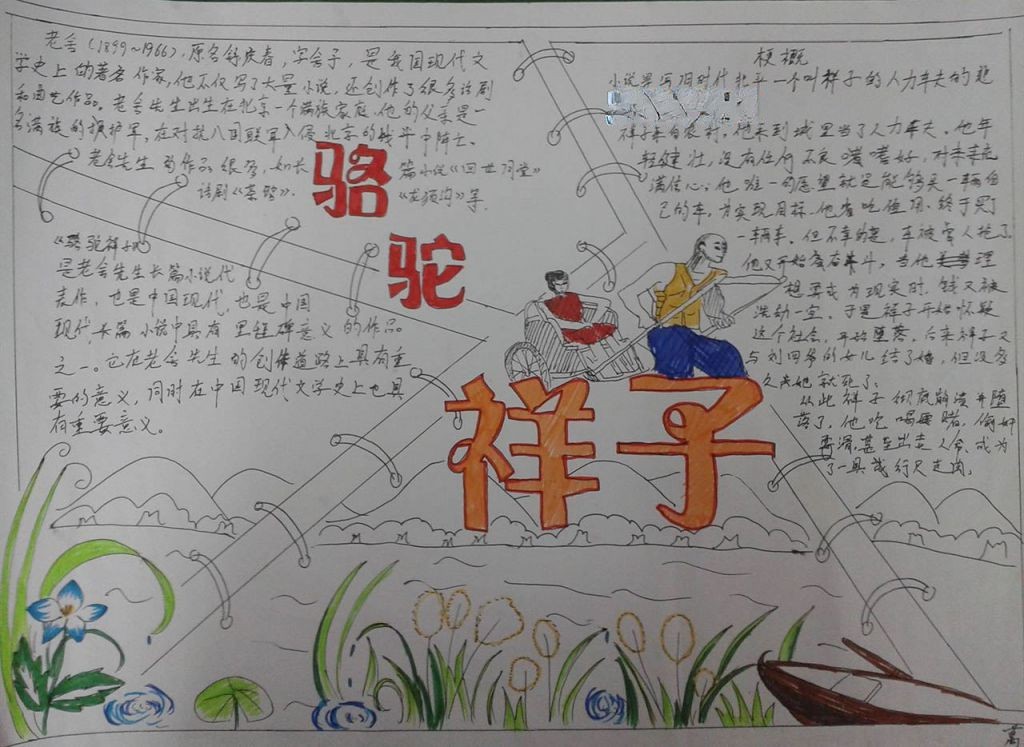 老舍(1899~1966),原名舒庆春,字舍予,是我国现代文
学史上的著名作家,他不仅写了大量小说,还创作了很多话剧
和曲艺作品。老舍先生出生在北京一个满族家庭,他的父亲是一
名满族的护军,在对抗八国联军入侵北京的战斗中阵亡。
老舍先生的作品很多,如长篇小说《四世同堂》
话剧《茶馆》、《龙须沟》等.
骆
驼
祥子
《骆驼祥子》
是老舍先生长篇小说代
表作,也是中国现代,也是中国
现代长篇小说中具有里程碑意义的作品
之一。它在老舍先生的创作道路上具有重
要的意义,同时在中国现代文学史上也具
有重要意义。
梗概
小说是写旧时代北平一个叫祥子的人力车夫的悲
祥子来自农村,他来到城里当了人力车夫,他年
轻健壮,没有任何不良嗜好,对未来充
满信心,他唯一的愿望就是能够买一辆自
己的车,为实现目标,他省吃俭用,终于买了
一辆车,但不幸的是,车被军人抢了
他又开始奋斗,当他理
想要成为现实时,钱又被
洗劫一空,于是祥子开始怀疑
这个社会,开始堕落,后来祥子又
与刘四爷的女儿结了婚,但没多
久她就死了,
从此祥子彻底解读并堕
落了,他吃喝嫖赌,偷奸
耍滑,甚至出卖人命,成为
了一具行尸走肉。